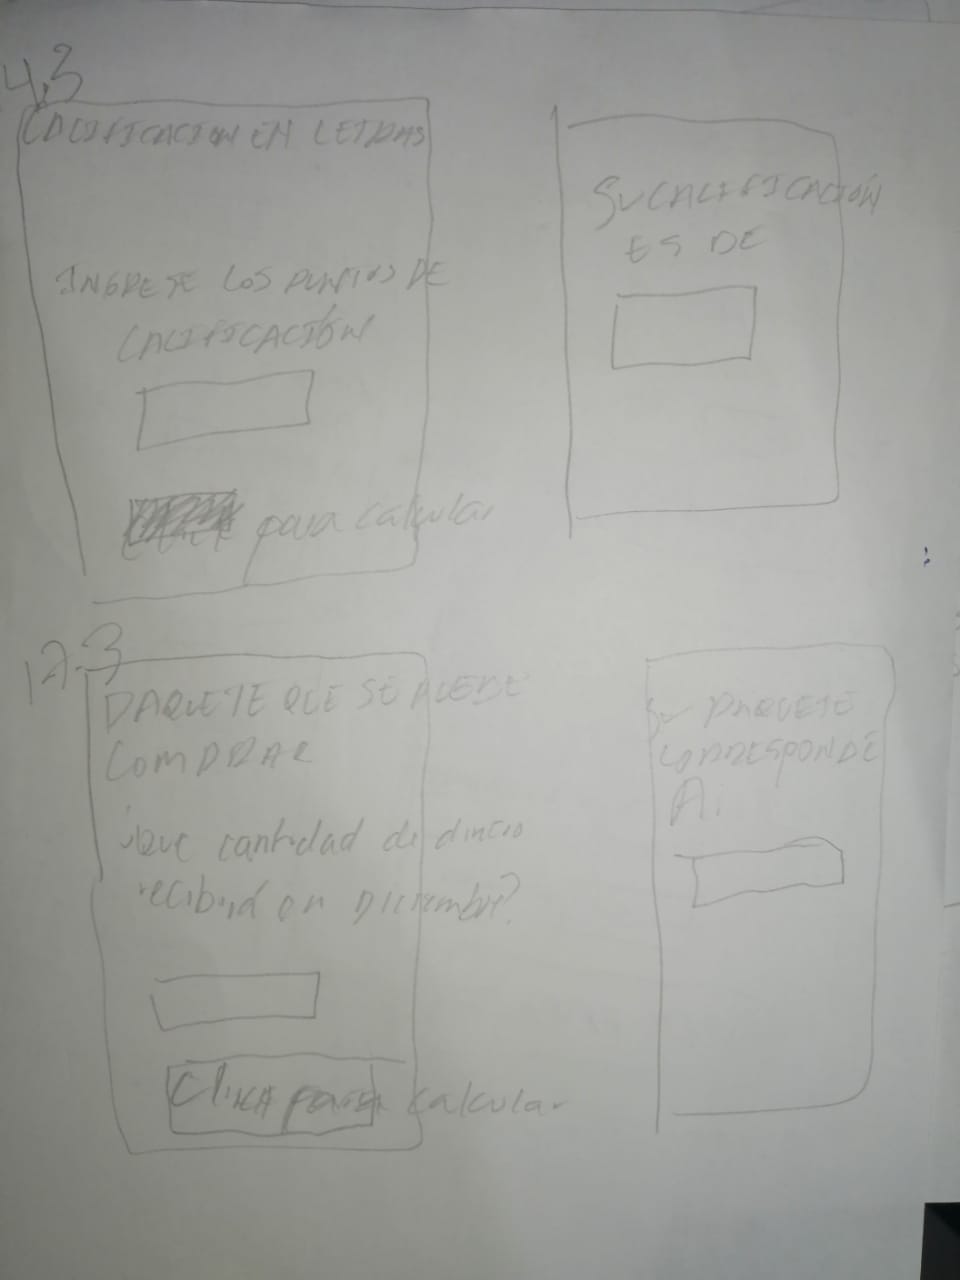 4.3
CALIFICACION EN LETRAS
INGRESE LOS PUNTOS DE
CALIFICACIÓN
para calcular
SU CALIFICACIÓN
ES DE
12.3
PAQUETE QUE SE PUEDE
COMPRAR
¿Que cantidad de dinero
recibirá en Diciembre?
Click para calcular
SU PAQUETE
CORRESPONDE
A: